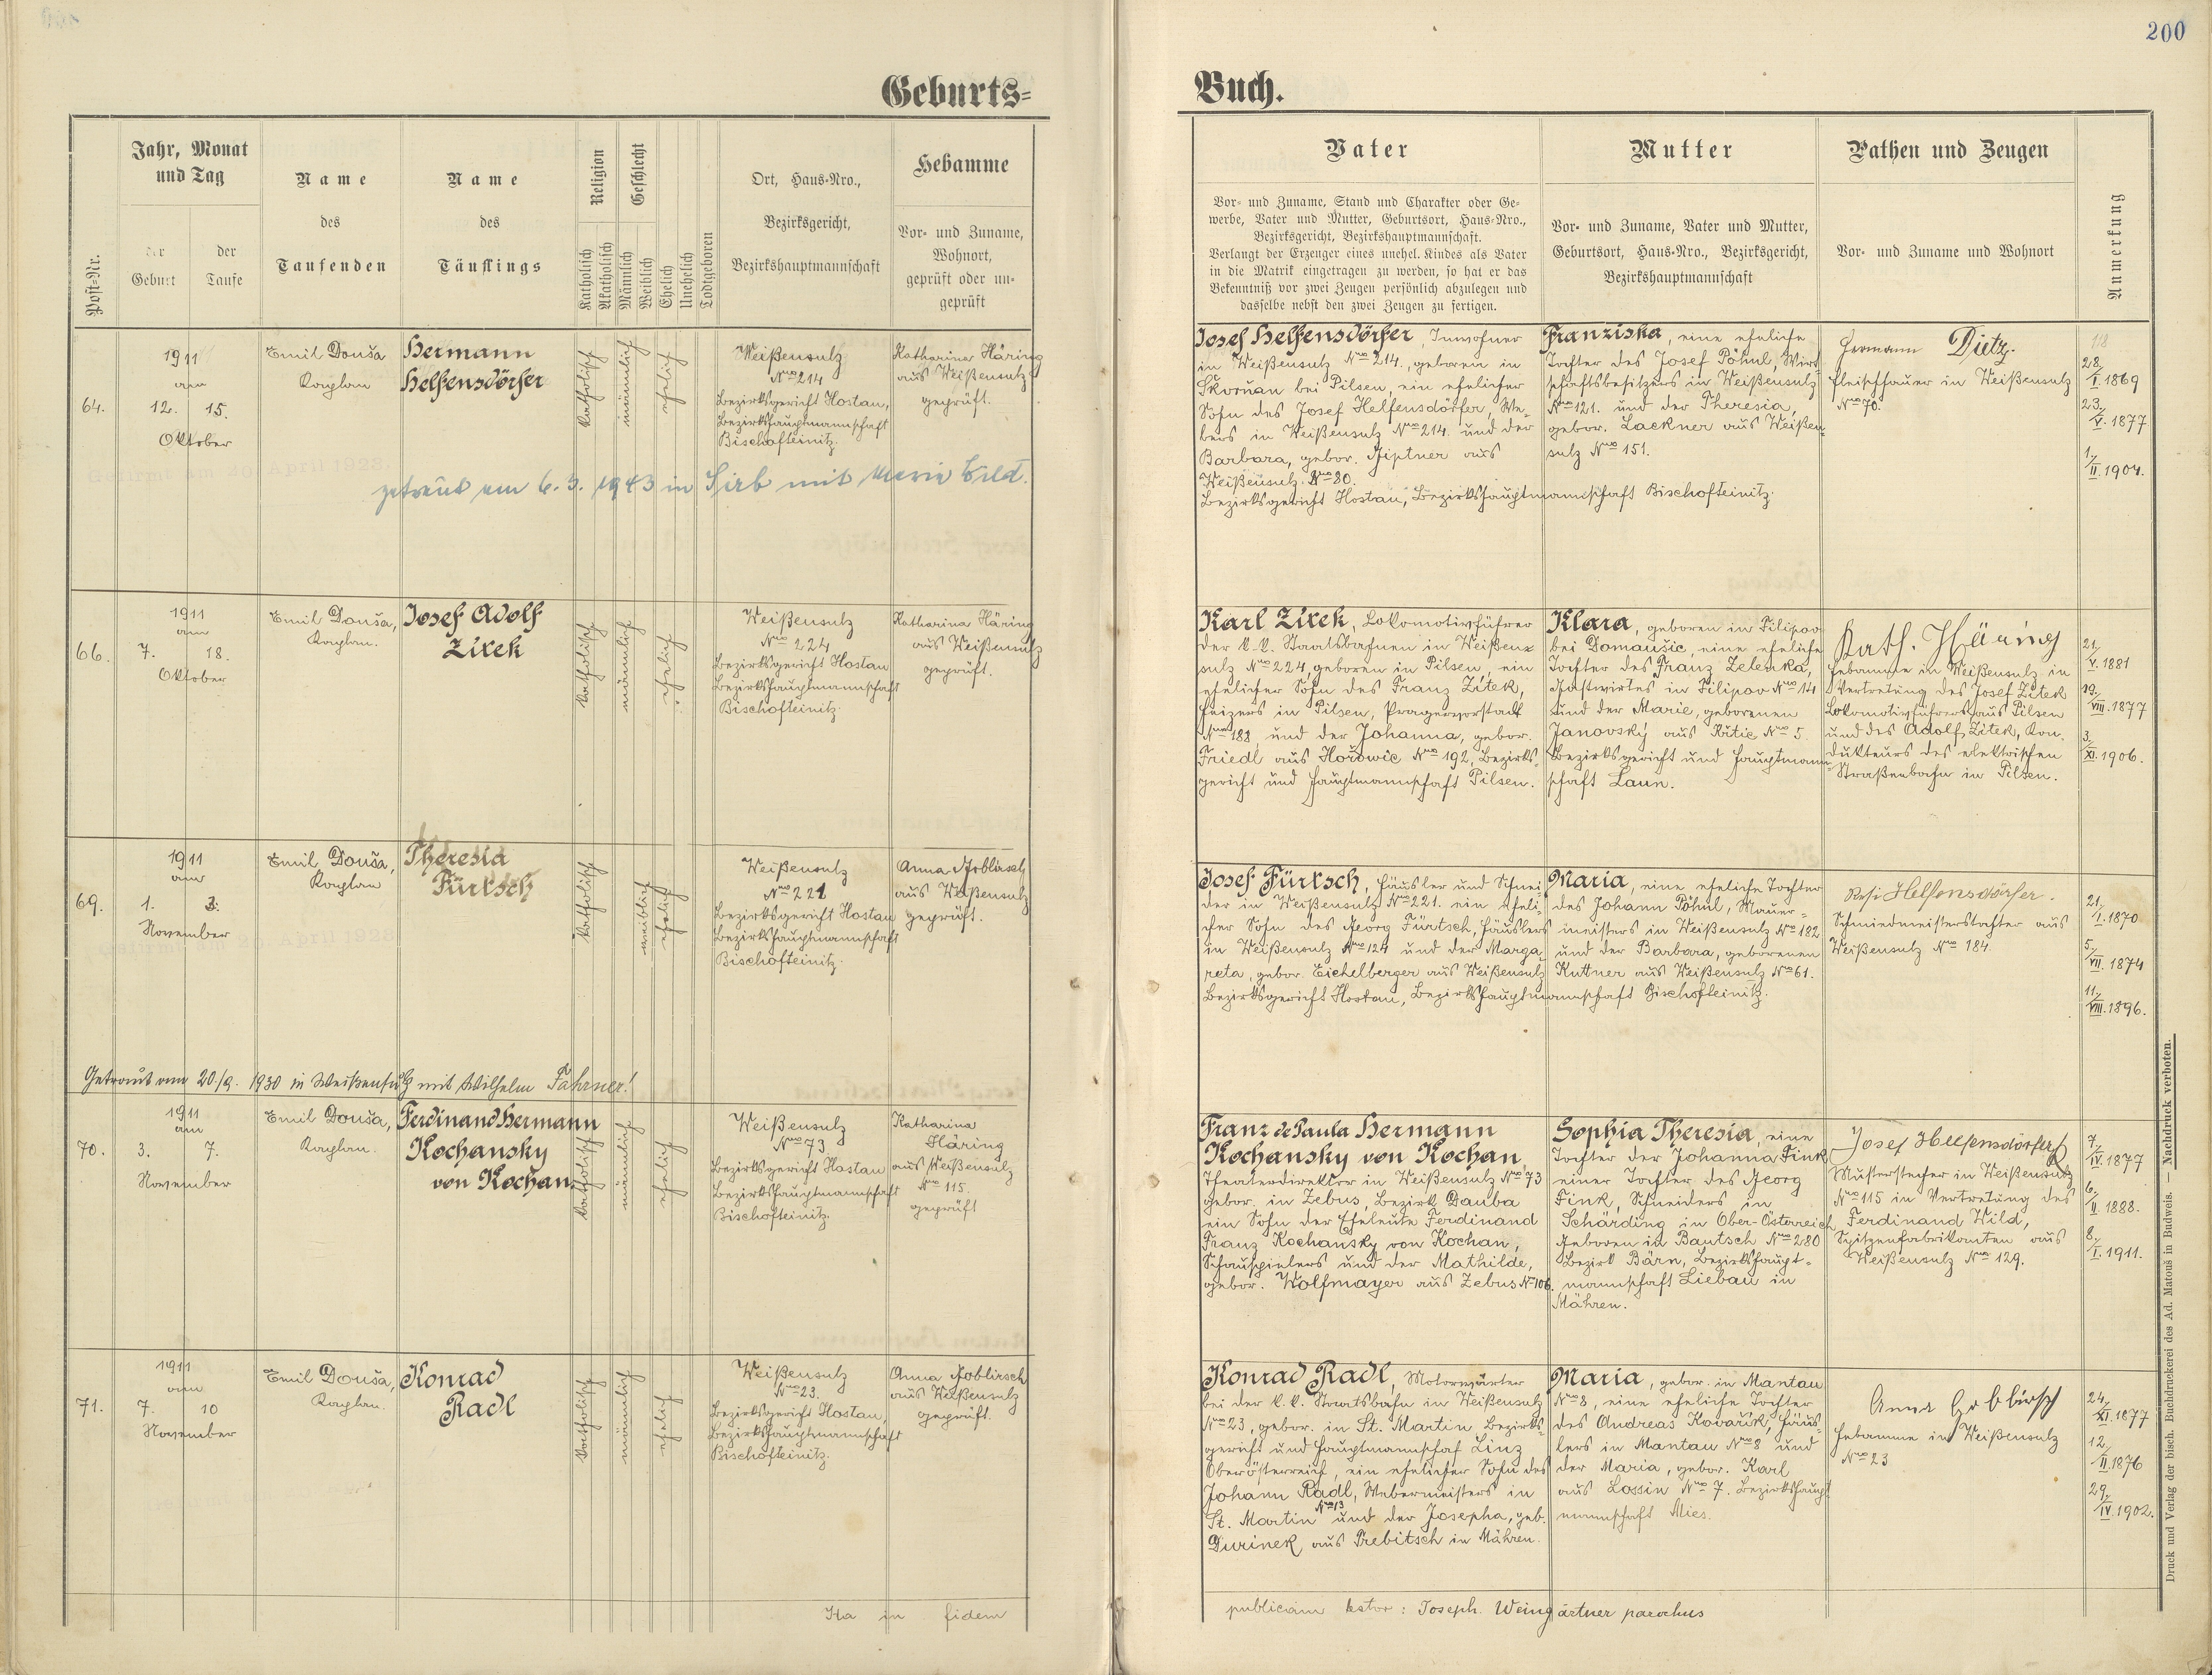 200
Geburts=
Buch.
Post=Nr.
Jahr, Monat
und Tag
der
Geburt
der
Taufe
Name
des
Taufenden
Name
des
Täuflings
Religion
Katholisch
Akatholisch
Geschlecht
Männlich
Weiblich
Ehelich
Unehelich
Todtgeboren
Ort, Haus=Nro.,
Bezirksgericht,
Bezirkshauptmannschaft
Hebamme
Vor= und Zuname,
Wohnort,
geprüft oder un=
geprüft
Vater
Vor= und Zuname, Stand und Charakter oder Ge=
werbe, Vater und Mutter, Geburtsort, Haus=Nro.,
Bezirksgericht, Bezirkshauptmannschaft.
Verlangt der Erzeuger eines unehel. Kindes als Vater
in die Matrik eingetragen zu werden, so hat er das
Bekenntniß vor zwei Zeugen persönlich abzulegen und
dasselbe nebst den zwei Zeugen zu fertigen.
Mutter
Vor= und Zuname, Vater und Mutter,
Geburtsort, Haus=Nro., Bezirksgericht,
Bezirkshauptmannschaft
Pathen und Zeugen
Vor= und Zuname und Wohnort
Anmerkung
64.
1911
am
12. 15.
Oktober
Emil Douša
Kaplan
Hermann
Helfensdörfer
katholisch
männlich
ehelich
Weißensulz
Nro 214
Bezirksgericht Hostau,
Bezirkshauptmannschaft
Bischofteinitz.
Katharina Häring
aus Weißensulz
geprüft.
Gefirmt am 20. April 1923.
getraut am 6. 3. 1943 in Sirb mit Maria Wild.
Josef Helfensdörfer, Inwohner
in Weißensulz Nro 214., geboren in
Skvrňan bei Pilsen, ein ehelicher
Sohn des Josef Helfensdörfer, We=
bers in Weißensulz Nro 214. und der
Barbara, gebor. Giptner aus
Weißensulz Nro 80.
Bezirksgericht Hostau, Bezirkshauptmannschaft Bischofteinitz.
Franziska, eine eheliche
Tochter des Josef Pöhnl, Wirt=
schaftsbesitzers in Weißensulz
Nro 121. und der Theresia,
gebor. Lackner aus Weißen=
sulz Nro 151.
Hermann Dietz.
Fleischhauer in Weißensulz
Nro 70.
28./I. 1869
23./V. 1877
1./II. 1904.
66.
1911
am
7. 18.
Oktober
Emil Douša,
Kaplan.
Josef Adolf
Zítek
katholisch
männlich
ehelich
Weißensulz
Nro 224
Bezirksgericht Hostau
Bezirkshauptmannschaft
Bischofteinitz.
Katharina Häring
aus Weißensulz
geprüft.
Karl Zítek, Lokomotivführer
der k. k. Staatsbahnen in Weißen=
sulz Nro 224, geboren in Pilsen, ein
ehelicher Sohn des Franz Zítek,
Heizers in Pilsen, Pragervorstadt
Nro 188 und der Johanna, gebor.
Friedl aus Hořowic Nro 192, Bezirks=
gericht und Hauptmannschaft Pilsen.
Klara, geboren in Filipov
bei Domaušic, eine eheliche
Tochter des Franz Zelenka,
Gastwirtes in Filipov Nro 14
und der Marie, geborenen
Janovský aus Nro 5.
Bezirksgericht und Hauptmann=
schaft Laun.
Kath. Häring
Hebamme in Weißensulz in
Vertretung des Josef Zítek
Lokomotivführers aus Pilsen
und des Adolf Zítek, Kon=
dukteurs des elektrischen
Straßenbahn in Pilsen.
21./V. 1881
19./VIII. 1877
3./XI. 1906.
69.
1911
am
1. 3.
November
Emil Douša,
Kaplan
Theresia
Fürtsch
katholisch
weiblich
ehelich
Weißensulz
Nro 221
Bezirksgericht Hostau
Bezirkshauptmannschaft
Bischofteinitz.
Anna Goblirsch
aus Weißensulz
geprüft.
Getraut am 20./9. 1930 in Weißensulz mit Wilhelm Fahrner!
Josef Fürtsch, Häusler und Schnei=
der in Weißensulz Nro 221. ein eheli=
cher Sohn des Georg Fürtsch, Häuslers
in Weißensulz Nro 124 und der Marga=
reta, gebor. Eichelberger aus Weißensulz
Bezirksgericht Hostau, Bezirkshauptmannschaft Bischofteinitz.
Maria, eine eheliche Tochter
des Johann Pöhnl, Mauer=
meisters in Weißensulz Nro 182
und der Barbara, geborenen
Kuttner aus Weißensulz Nro 61.
Resi Helfensdörfer.
Schmiedmeisterstochter aus
Weißensulz Nro 184.
21./I. 1870
5./VII. 1874
11./VIII. 1896.
70.
1911
am
3. 7.
November
Emil Douša,
Kaplan.
Ferdinand Hermann
Kochansky
von Kochan.
katholisch
männlich
ehelich
Weißensulz
Nro 73
Bezirksgericht Hostau
Bezirkshauptmannschaft
Bischofteinitz.
Katharina
Häring
aus Weißensulz
Nro 115.
geprüft
Franz de Paula Hermann
Kochansky von Kochan
Theaterdirektor in Weißensulz Nro 73
gebor. in Zebus, Bezirk Dauba
ein Sohn der Eheleute Ferdinand
Franz Kochansky von Kochan,
Schauspielers und der Mathilde,
gebor. Wolfmayer aus Zebus No 106.
Sophia Theresia, eine
Tochter der Johanna Fink
einer Tochter des Georg
Fink, Schneiders in
Schärding in Ober-Österreich
Geboren in Bautsch Nro 280
Bezirk Bärn, Bezirkshaupt=
mannschaft Liebau in
Mähren.
Josef Helfensdörfer
Musterstecher in Weißensulz
Nro 115 in Vertretung des
Ferdinand Wild,
Spitzenfabrikanten aus
Weißensulz Nro 129.
7./IV. 1877
6./II. 1888.
8./I. 1911.
71.
1911
am
7. 10
November
Emil Douša,
Kaplan.
Konrad
Radl
katholisch
männlich
ehelich
Weißensulz
Nro 23.
Bezirksgericht Hostau,
Bezirkshauptmannschaft
Bischofteinitz.
Anna Goblirsch
aus Weißensulz
geprüft.
Konrad Radl, Motorwärter
bei der k. k. Staatsbahn in Weißensulz
Nro 23, gebor. in St. Martin Bezirks=
gericht und Hauptmannschaft Linz
Oberösterreich, ein ehelicher Sohn des
Johann Radl, Webermeisters in
St. Martin Nro 13 und der Josepha, geb.
Durinek aus Trebitsch in Mähren.
Maria, gebor. in Mantau
Nro 8, eine eheliche Tochter
des Andreas Kovařík, Häus=
lers in Mantau Nro 8 und
der Maria, gebor. Karl
aus Lossin Nro 7. Bezirkshaupt
mannschaft Mies.
Anna Goblirsch
Hebamme in Weißensulz
Nro 23
24./XI. 1877
12./II. 1876
29./IV. 1902.
Ita in fidem
publicam testor: Joseph Weingärtner parochus
Druck und Verlag der bisch. Buchdruckerei des Ad. Matouš in Budweis. — Nachdruck verboten.